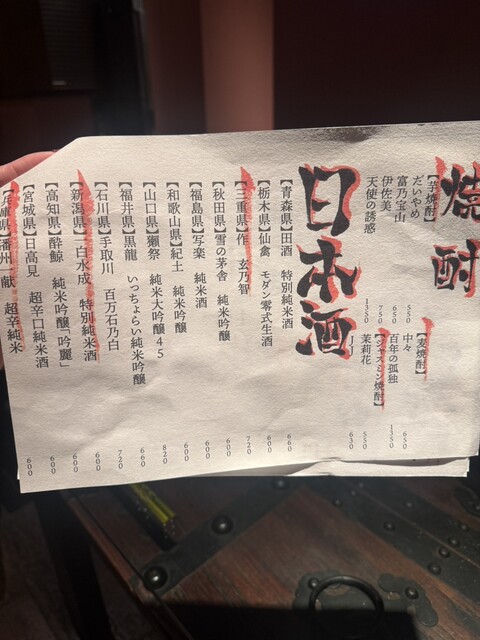 焼酎
【芋焼酎】
だいやめ 550
富乃宝山 650
伊佐美 750
天使の誘惑 1350
【麦焼酎】
中々 650
百年の孤独 1350
【ジャスミン焼酎】
茉莉花 550
JJ 630
日本酒
【青森県】田酒 特別純米酒 660
【栃木県】仙禽 モダン零式生酒 600
【三重県】作 玄乃智 720
【秋田県】雪の茅舎 純米吟醸 600
【福島県】写楽 純米酒 600
【和歌山県】紀土 純米吟醸 600
【山口県】獺祭 純米大吟醸45 820
【福井県】黒龍 いっちょらい純米吟醸 660
【石川県】手取川 百万石乃白 720
【新潟県】一白水成 特別純米酒 600
【高知県】酔鯨 純米吟醸「吟麗」 600
【宮城県】日高見 超辛口純米酒 600
【兵庫県】播州一献 超辛純米 600